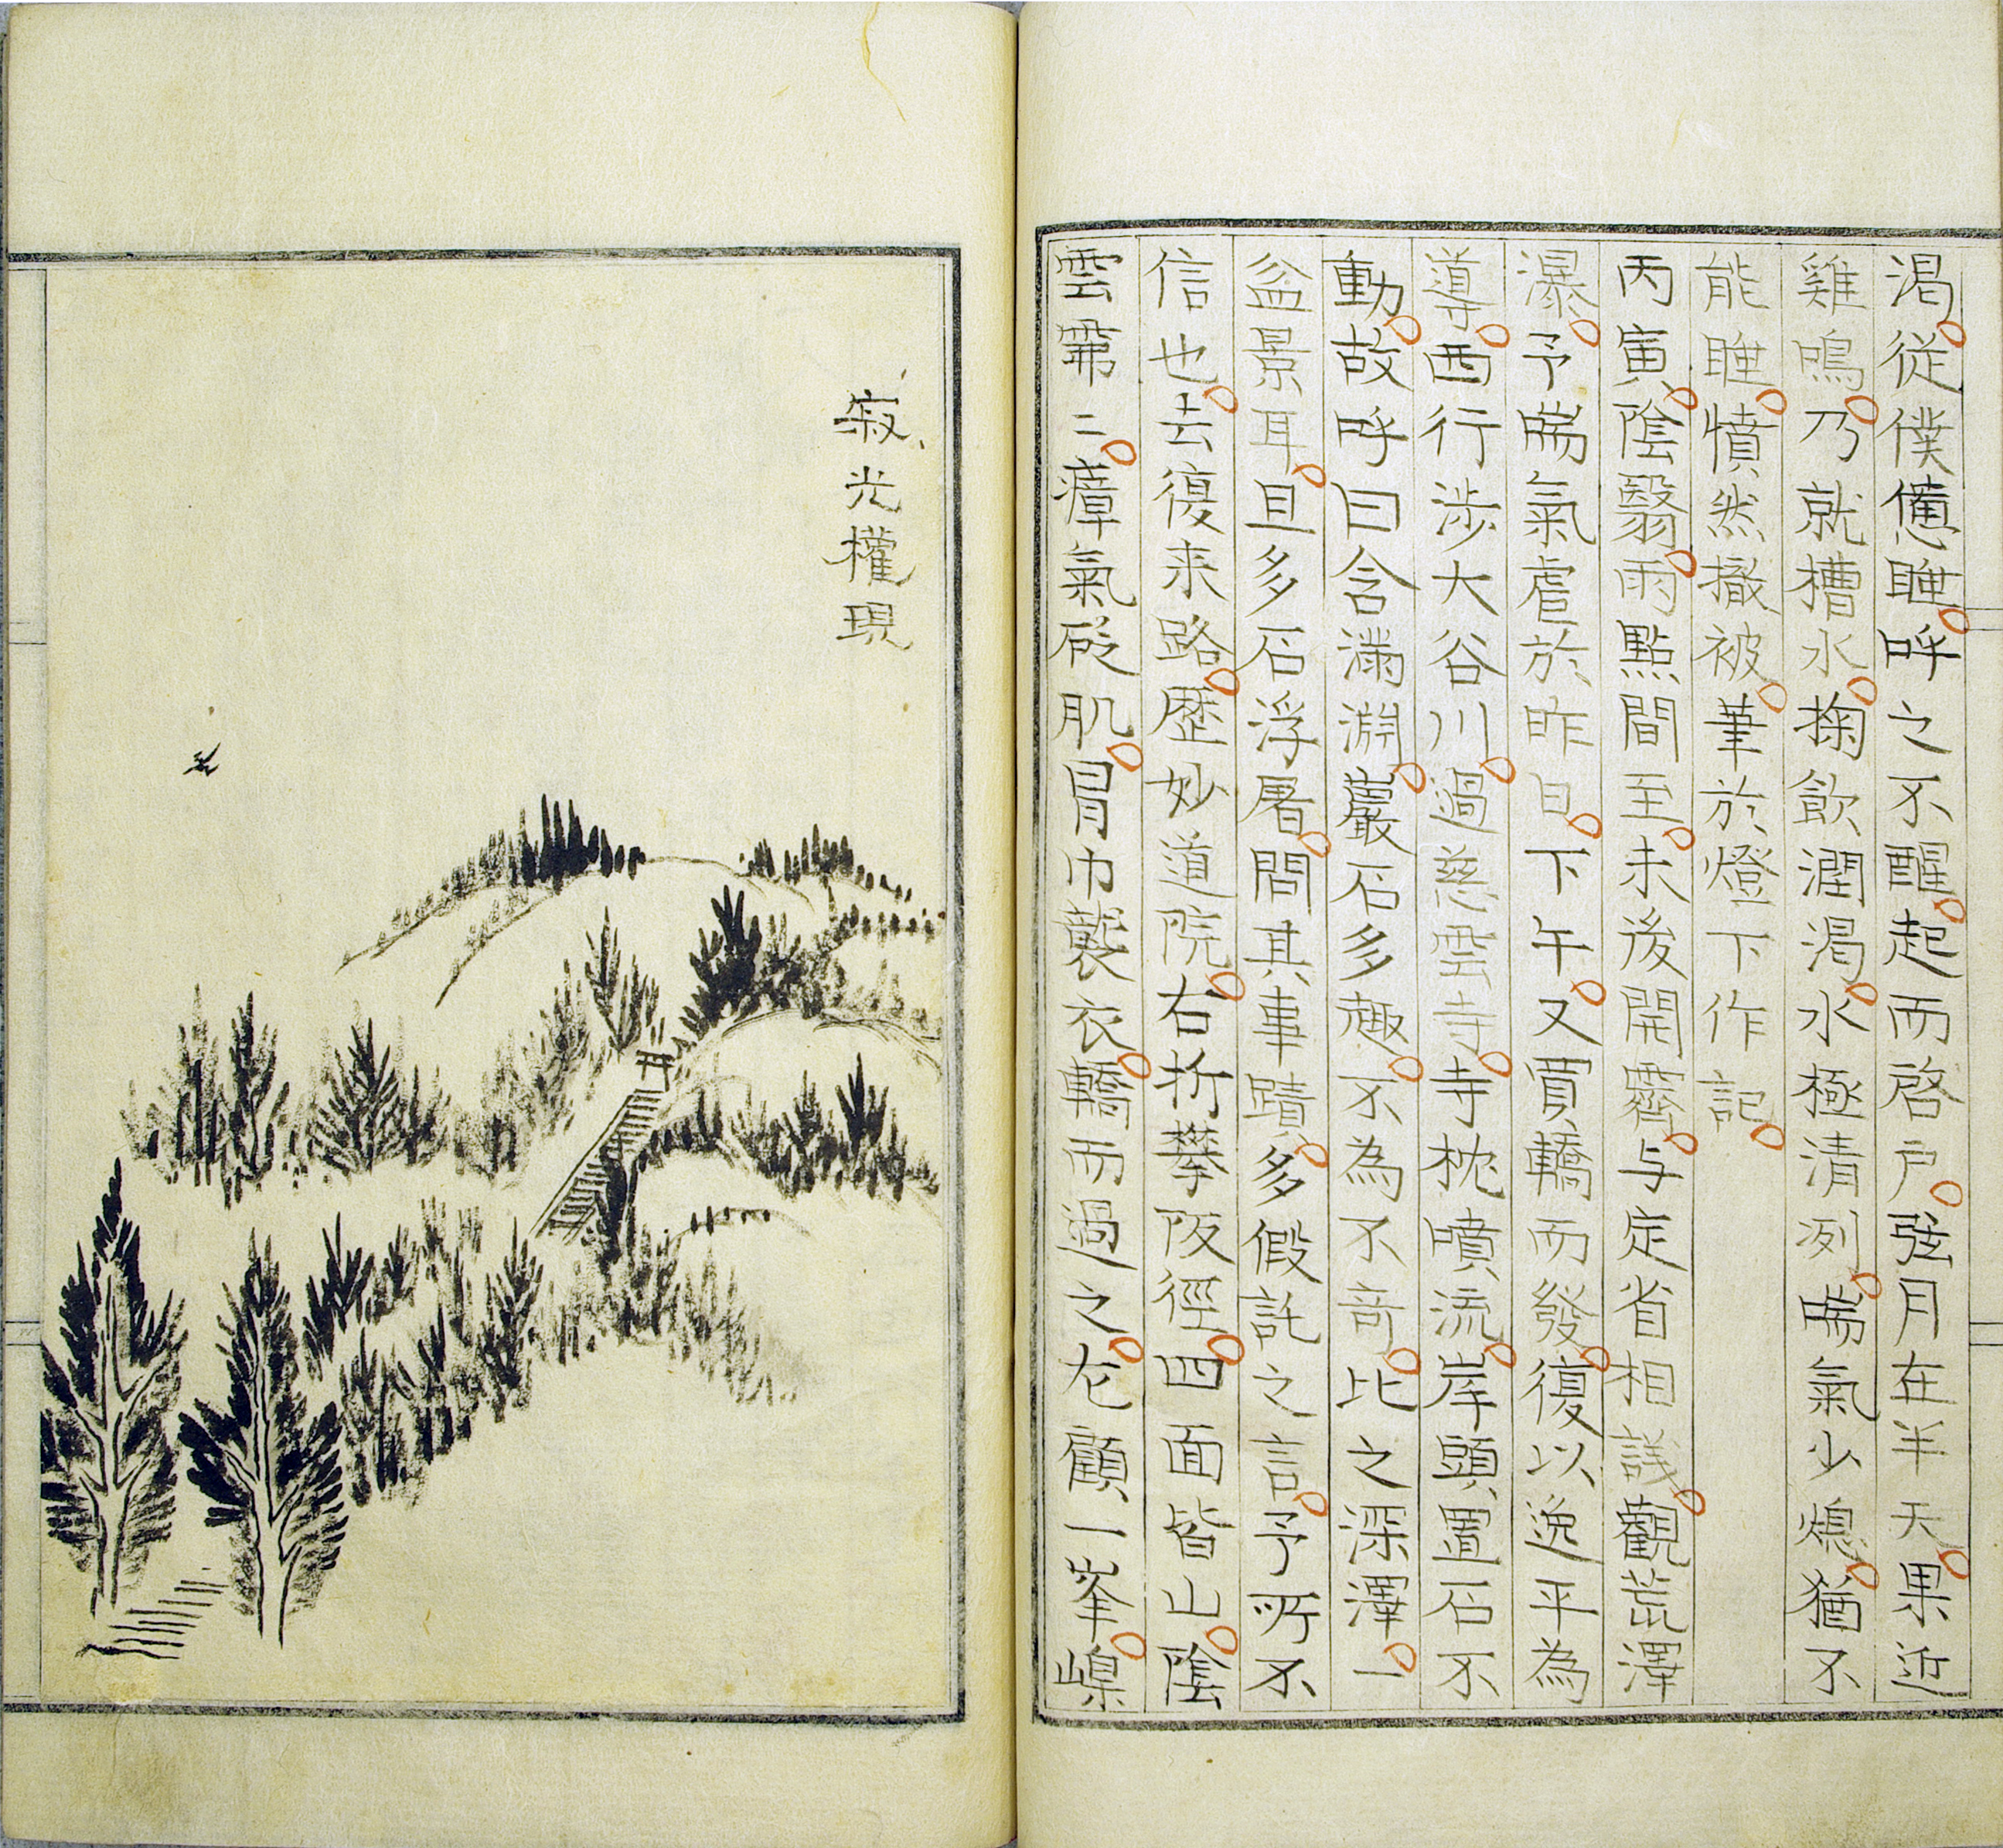 渇。從僕憊睡。呼之不醒。起而啓戸。弦月在半天。果近
雞鳴。乃就槽水。掬飲潤渇。水極清冽。喘氣少熄。猶不
能睡。憤然撤被。筆於燈下作記。
丙寅。陰翳。雨點間至。未後開霽。与定省相議。觀荒澤
瀑。予喘氣虐於昨日。下午。又買轎而發。復以逸平為
導。西行渉大谷川。過慈雲寺。寺枕噴流。岸頭置石不
動。故呼曰含滿淵。巖石多趣。不為不奇。比之深澤。一
盆景耳。且多石浮屠。問其事蹟。多假託之言。予所不
信也。去復来路。歴妙道院。右折攀阪徑。四面皆山。陰
雲霏二。瘴氣砭肌。冒巾襲衣。轎而過之。左顧一峯。嵲
寂光權現